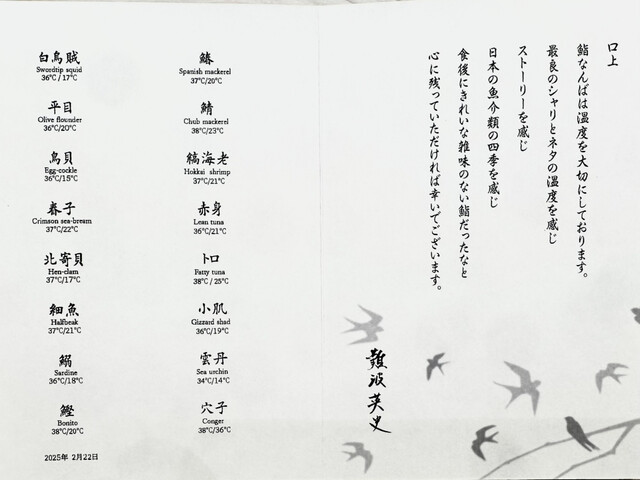 口上
鮨なんばは温度を大切にしております。
最良のシャリとネタの温度を感じ
ストーリーを感じ
日本の魚介類の四季を感じ
食後にきれいな雑味のない鮨だったなと
心に残っていただければ幸いでございます。
難波英史
白烏賊
Swordtip squid
36℃/17℃
平目
Olive flounder
36℃/20℃
鳥貝
Egg-cockle
36℃/15℃
春子
Crimson sea-bream
37℃/22℃
北寄貝
Hen-clam
37℃/17℃
細魚
Halfbeak
37℃/21℃
鰯
Sardine
36℃/18℃
鰹
Bonito
38℃/20℃
鰆
Spanish mackerel
37℃/20℃
鯖
Chub mackerel
38℃/23℃
縞海老
Hokkai shrimp
37℃/21℃
赤身
Lean tuna
36℃/21℃
トロ
Fatty tuna
38℃/25℃
小肌
Gizzard shad
36℃/19℃
雲丹
Sea urchin
34℃/14℃
穴子
Conger
38℃/36℃
2025年 2月22日